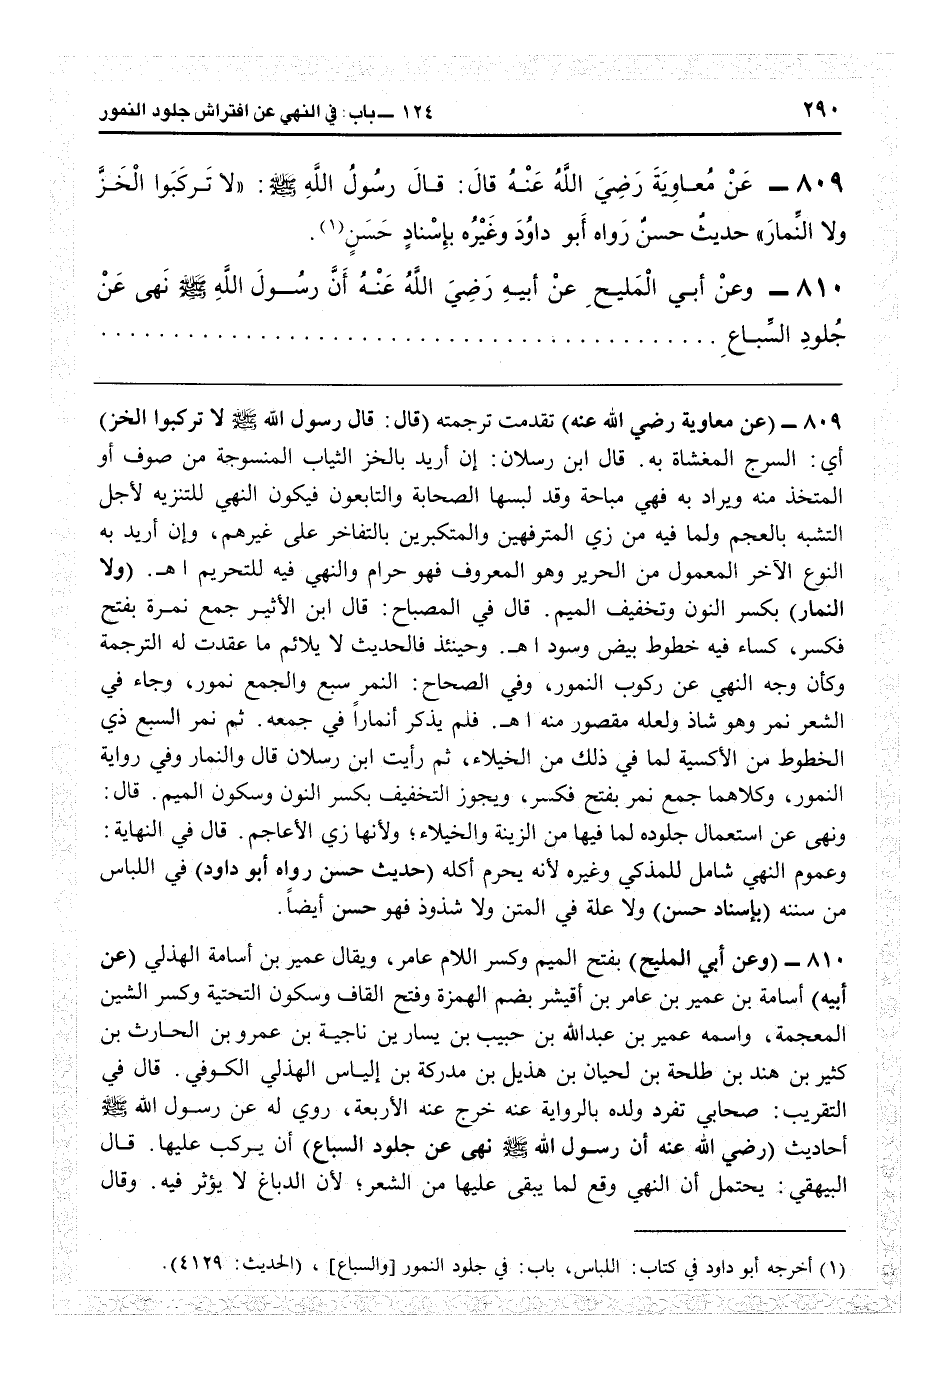 ٢٩٠
١٢٤ ــ باب: في النهي عن افتراش جلود النمور
٨٠٩ ــ عَنْ مُعـاوِيَةَ رَضِيَ اللَّهُ عَنْـهُ قالَ: قـالَ رسُولُ اللَّهِ ﷺ: «لا تَـركَبَوا الْخَـزَّ
ولا النِّمارَ» حديثٌ حسنٌ رَواه أَبو داوُدَ وغَيْرُه بإِسْنادٍ حَسَنٍ(١).
٨١٠ ــ وعنْ أبـي الْمَليـحِ عنْ أبيـهِ رَضِيَ اللَّهُ عَنْـهُ أَنَّ رسُــولَ اللَّهِ ﷺ نَهى عَنْ
جُلودِ السِّبـاعِ ..........................................
٨٠٩ ــ (عن معاوية رضي الله عنه) تقدمت ترجمته (قال: قال رسول الله ﷺ لا تركبوا الخز)
أي: السرج المغشاة به. قال ابن رسلان: إن أريد بالخز الثياب المنسوجة من صوف أو
المتخذ منه ويراد به فهي مباحة وقد لبسها الصحابة والتابعون فيكون النهي للتنزيه لأجل
التشبه بالعجم ولما فيه من زي المترفهين والمتكبرين بالتفاخر على غيرهم، وإن أريد به
النوع الآخر المعمول من الحرير وهو المعروف فهو حرام والنهي فيه للتحريم ا هـ. (ولا
النمار) بكسر النون وتخفيف الميم. قال في المصباح: قال ابن الأثيـر جمع نمـرة بفتح
فكسر، كساء فيه خطوط بيض وسود ا هـ. وحينئذ فالحديث لا يلائم ما عقدت له الترجمة
وكأن وجه النهي عن ركوب النمور، وفي الصحاح: النمر سبع والجمع نمور، وجاء في
الشعر نمر وهو شاذ ولعله مقصور منه ا هـ. فلم يذكر أنماراً في جمعه. ثم نمر السبع ذي
الخطوط من الأكسية لما في ذلك من الخيلاء، ثم رأيت ابن رسلان قال والنمار وفي رواية
النمور، وكلاهما جمع نمر بفتح فكسر، ويجوز التخفيف بكسر النون وسكون الميم. قال:
ونهى عن استعمال جلوده لما فيها من الزينة والخيلاء؛ ولأنها زي الأعاجم. قال في النهاية:
وعموم النهي شامل للمذكي وغيره لأنه يحرم أكله (حديث حسن رواه أبو داود) في اللباس
من سننه (بإسناد حسن) ولا علة في المتن ولا شذوذ فهو حسن أيضاً.
٨١٠ ــ (وعن أبي المليح) بفتح الميم وكسر اللام عامر، ويقال عمير بن أسامة الهذلي (عن
أبيه) أسامة بن عمير بن عامر بن أقيشر بضم الهمزة وفتح القاف وسكون التحتية وكسر الشين
المعجمة، واسمه عمير بن عبدالله بن حبيب بن يسار ين ناجيـة بن عمرو بن الحـارث بن
كثير بن هند بن طلحة بن لحيان بن هذيل بن مدركة بن إليـاس الهذلي الكـوفي. قال في
التقريب: صحابي تفرد ولده بالرواية عنه خرج عنه الأربعة، روي له عن رسـول الله ﷺ
أحاديث (رضي الله عنه أن رسـول الله ﷺ نهى عن جلود السباع) أن يـركب عليها. قـال
البيهقي: يحتمل أن النهي وقع لما يبقى عليها من الشعر؛ لأن الدباغ لا يؤثر فيه. وقال
(١) أخرجه أبو داود في كتاب: اللباس، باب: في جلود النمور [والسباع] ، (الحديث: ٤١٢٩).